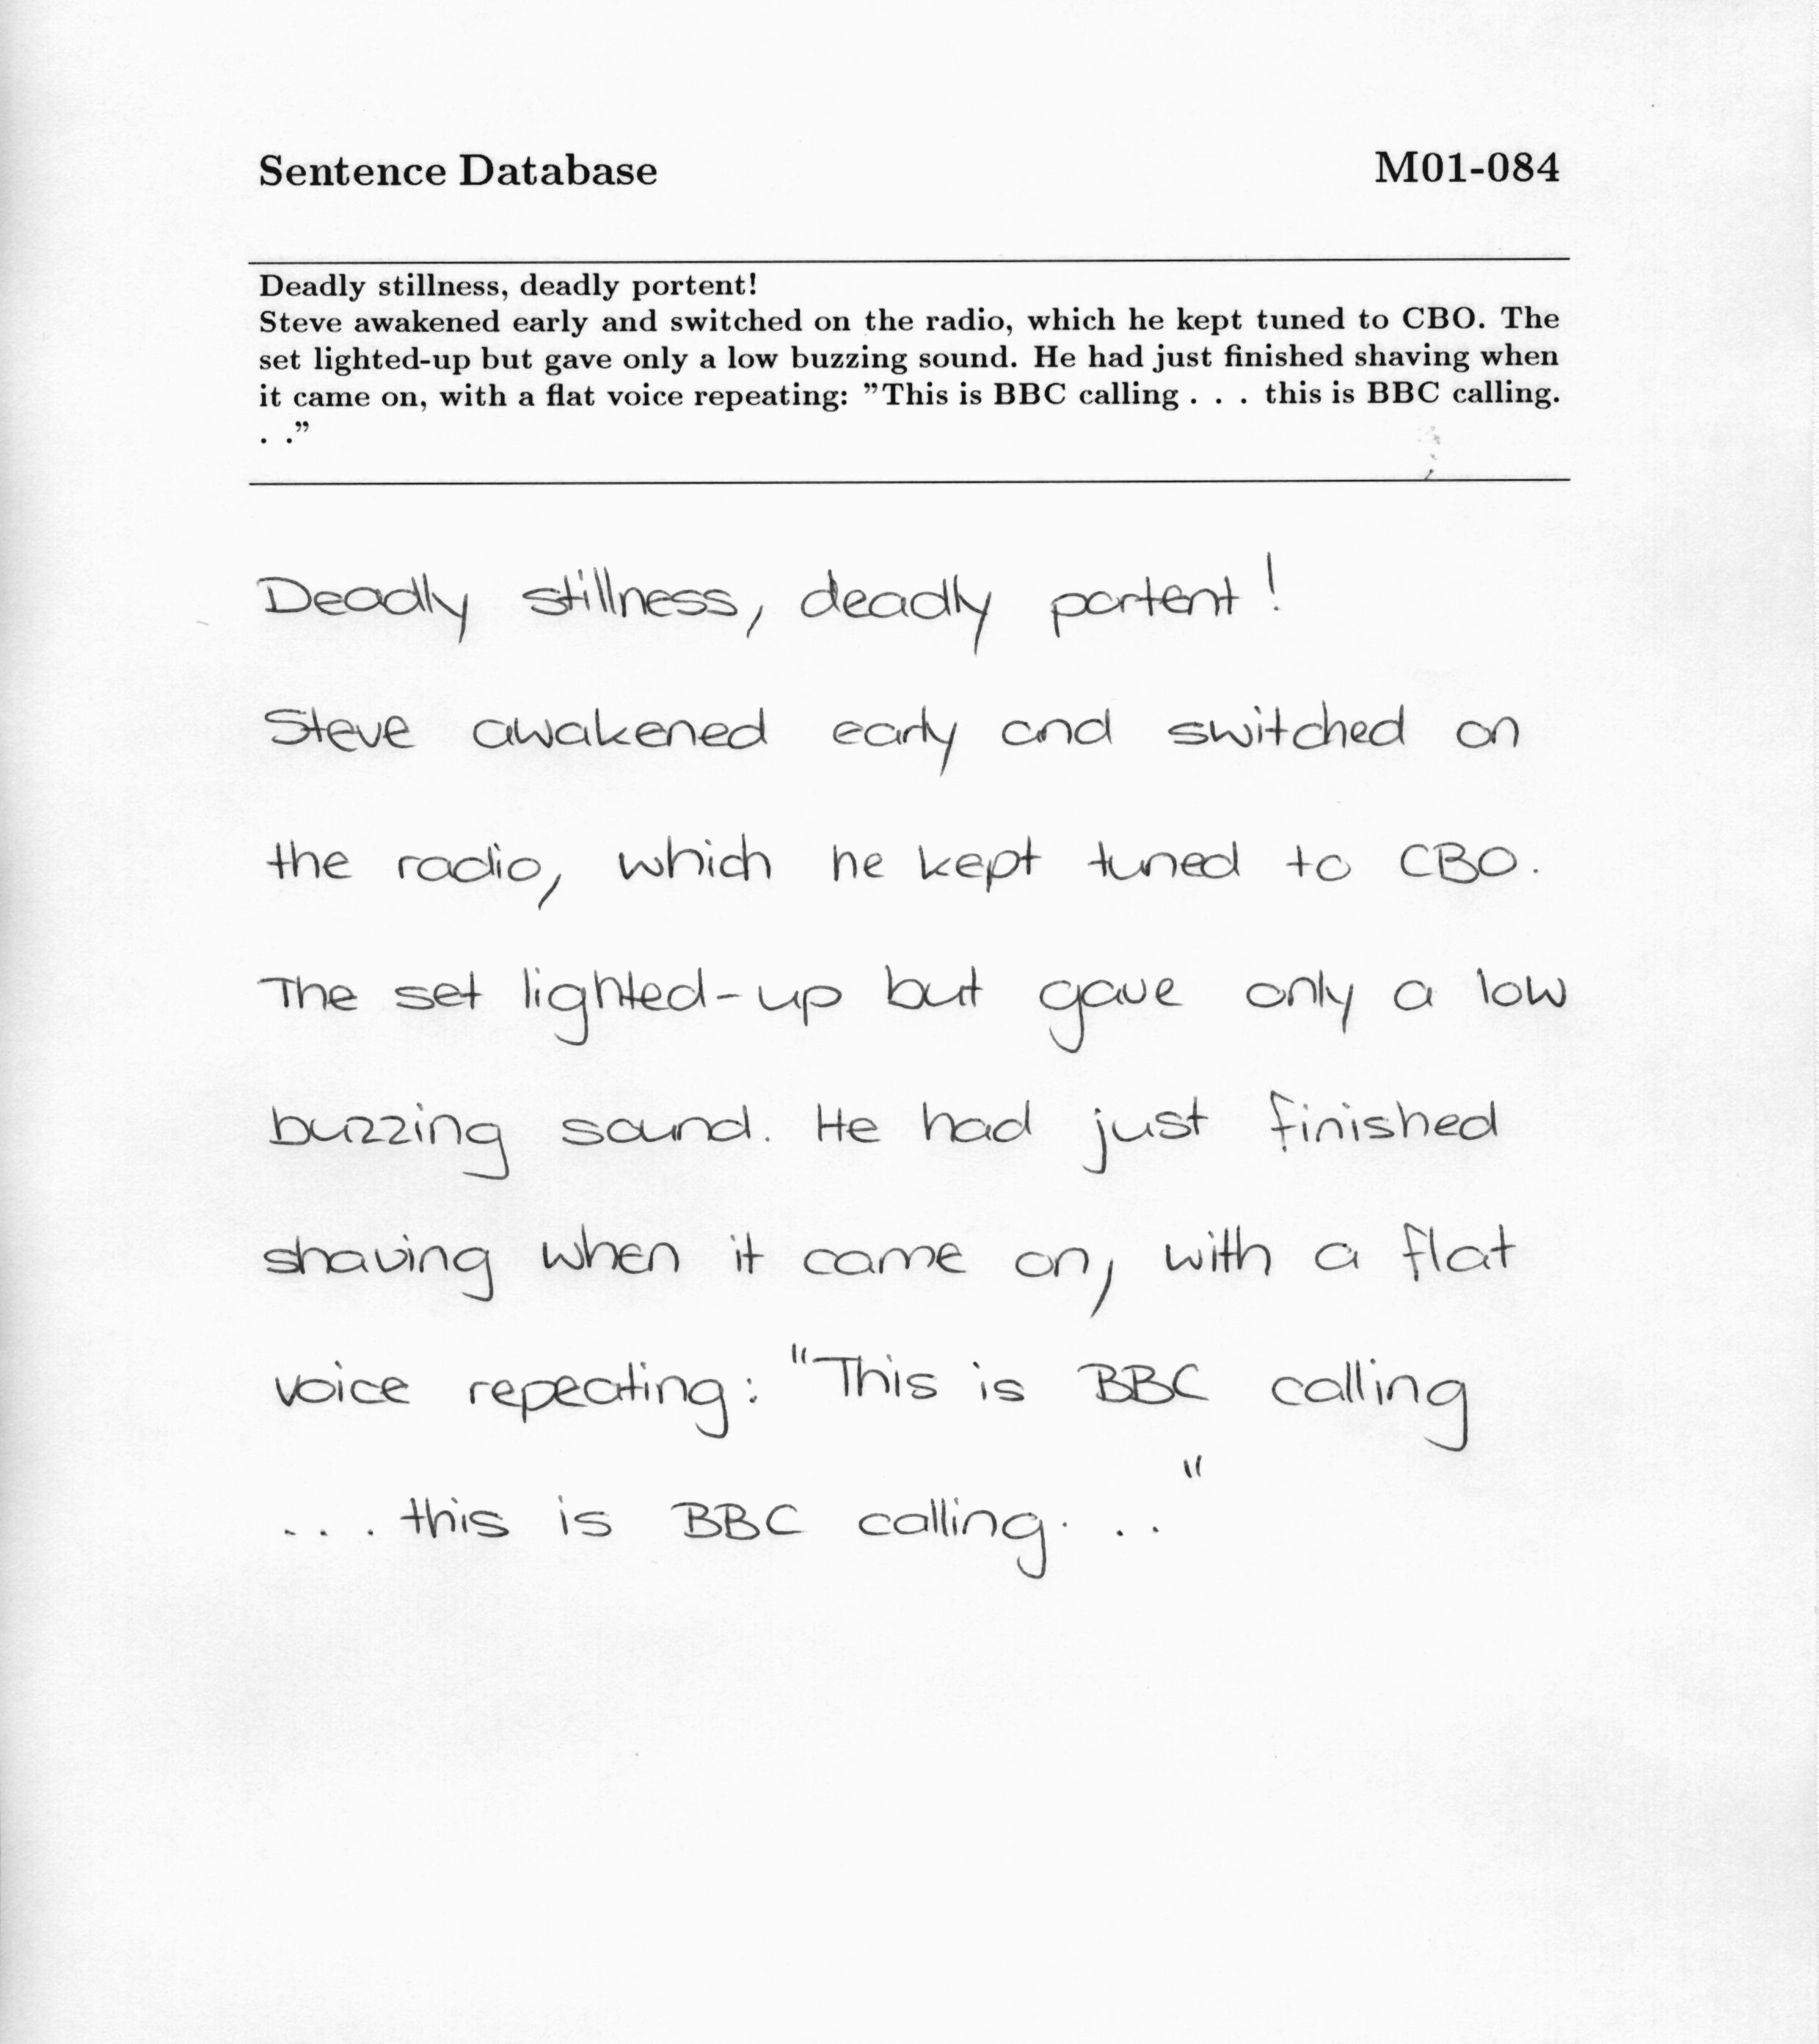 Sentence Database M01-084
Deadly stillness, deadly portent!
Steve awakened early and switched on the radio, which he kept tuned to CBO. The
set lighted-up but gave only a low buzzing sound. He had just finished shaving when
it came on, with a flat voice repeating: ”This is BBC calling . . . this is BBC calling.
. .”
Deadly stillness, deadly portent!
Steve awakened early and switched on
the radio, which he kept tuned to CBO.
The set lighted-up but gave only a low
buzzing sound. He had just finished
shaving when it came on, with a flat
voice repeating: "This is BBC calling
... this is BBC calling. . ."